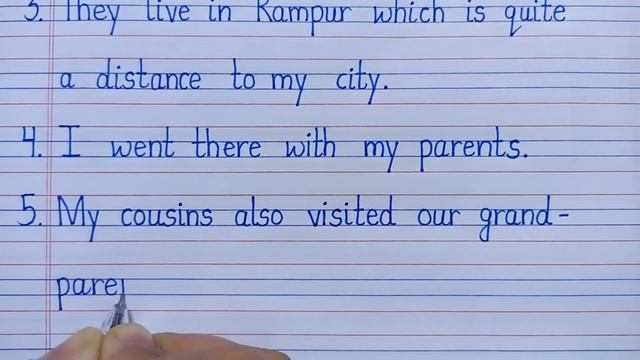 3. They live in Rampur which is quite
a distance to my city.
4. I went there with my parents.
5. My cousins also visited our grand-
pare